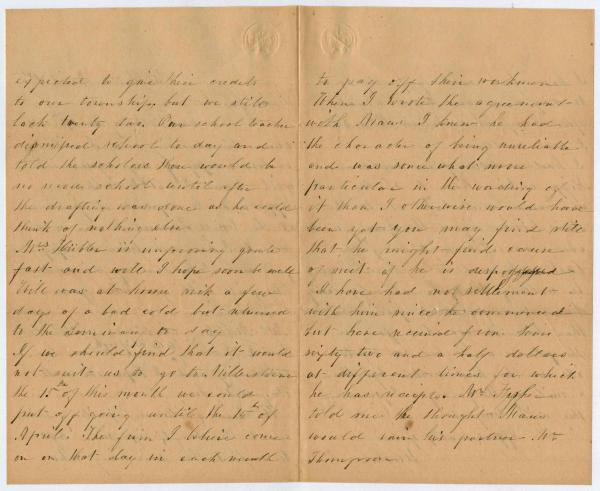 expected to give their credits
to our township but we still
lack twenty two. Our school teacher
dismissed school to day and
told the scholars there would be
no more school until after
the drafting was done as he could
think of nothing else
Mrs Hibler is improving quite
fast and will I hope soon be well
Will was at home sick a few
days of a bad cold but returned
to the Seminary to day
If we should find that it would
not suit us to go to
the 15th of this month we could
put off going until the 15th of
April. The firm I believe come
on on that day in each month
to pay off their workmen
When I wrote the agreement
with I knew he had
the character of being unreliable
and was some what more
particular in the wording of
it than I otherwise would have
been yet you may find still
that he might find cause
of suit if he is
I have had no settlement
with him since he commenced
but have received from him
sixty two and a half dollars
at different times for which
he has receipts. Mr
told me he thought
would his partner Mr
Thompson